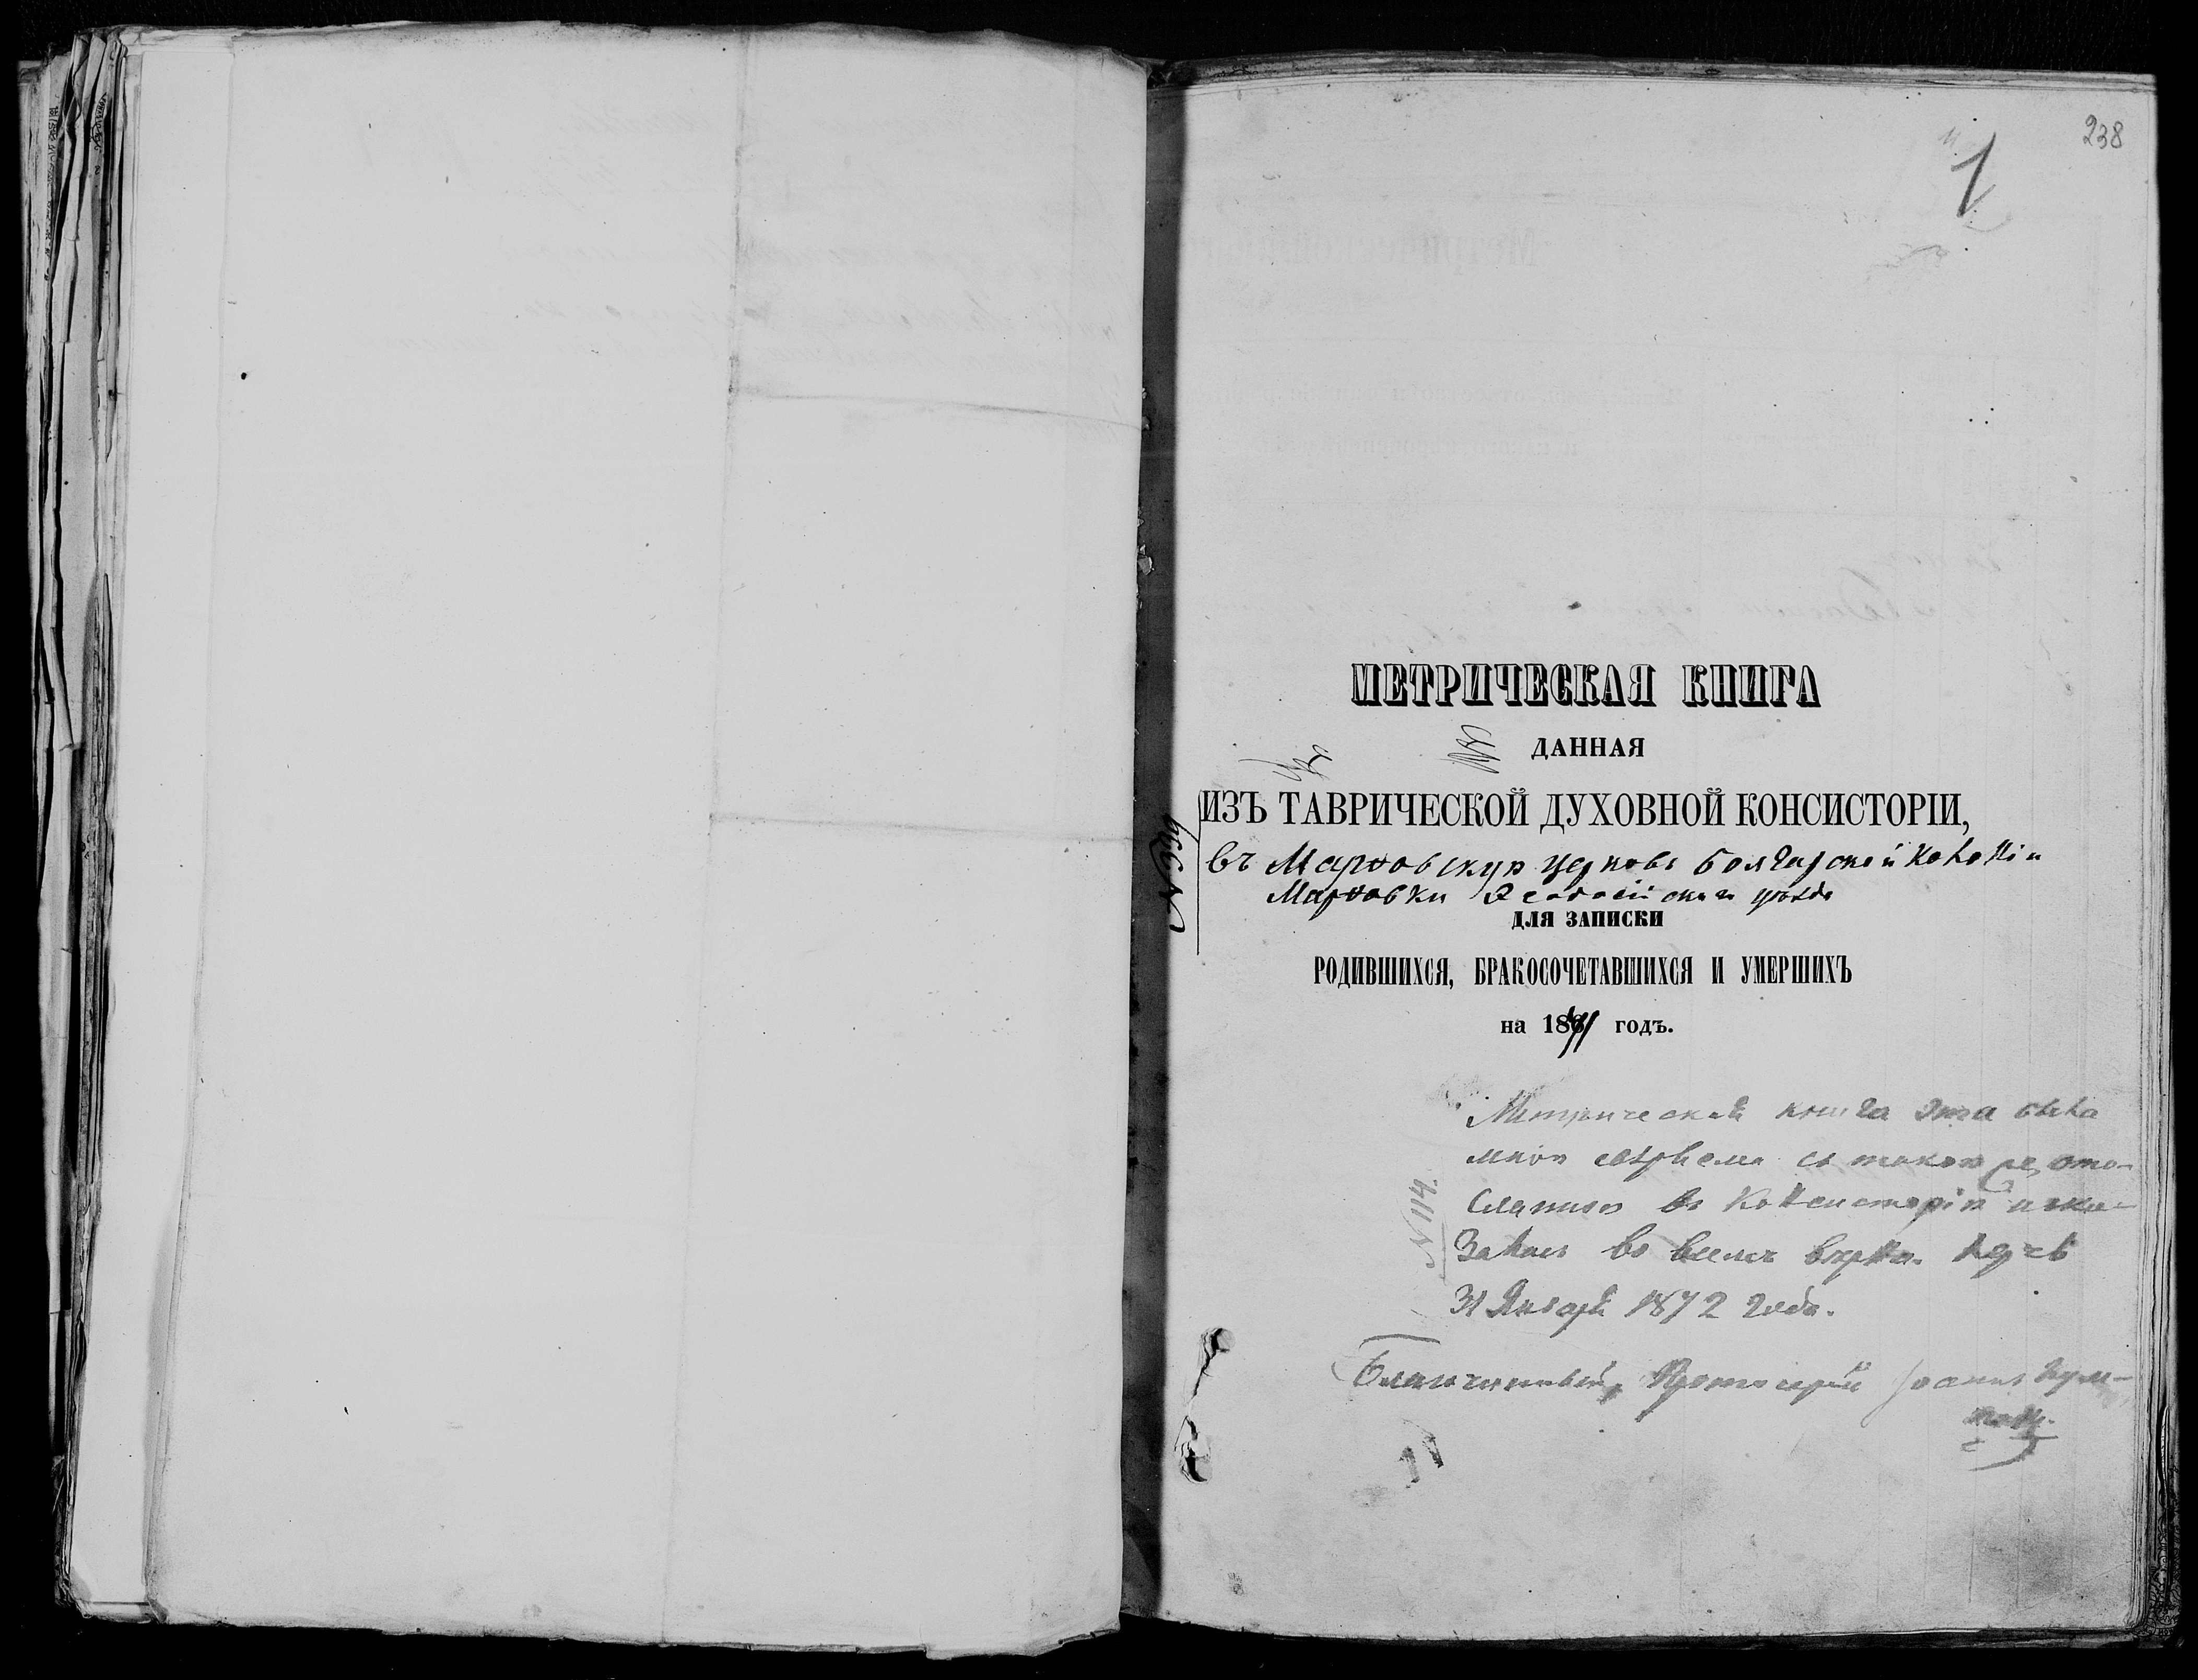 238
1
МЕТРИЧЕСКАЯ КНИГА
ДАННАЯ
ИЗЪ ТАВРИЧЕСКОЙ ДУХОВНОЙ КОНСИСТОРІИ,
въ Марфовскую церковь Болгарской Колоніи
Марфовки Ѳеодосійскаго уѣзда
ДЛЯ ЗАПИСКИ
РОДИВШИХСЯ, БРАКОСОЧЕТАВШИХСЯ И УМЕРШИХЪ
на 1871 годъ.
Метрическая книга эта была
мною свѣряема съ такою же, ото-
сланною въ Консисторію и ока-
залась во всемъ вѣрна. Керчь
31 Января 1872 года.
N 114.
Благочинный, Протоіерей Іоаннъ